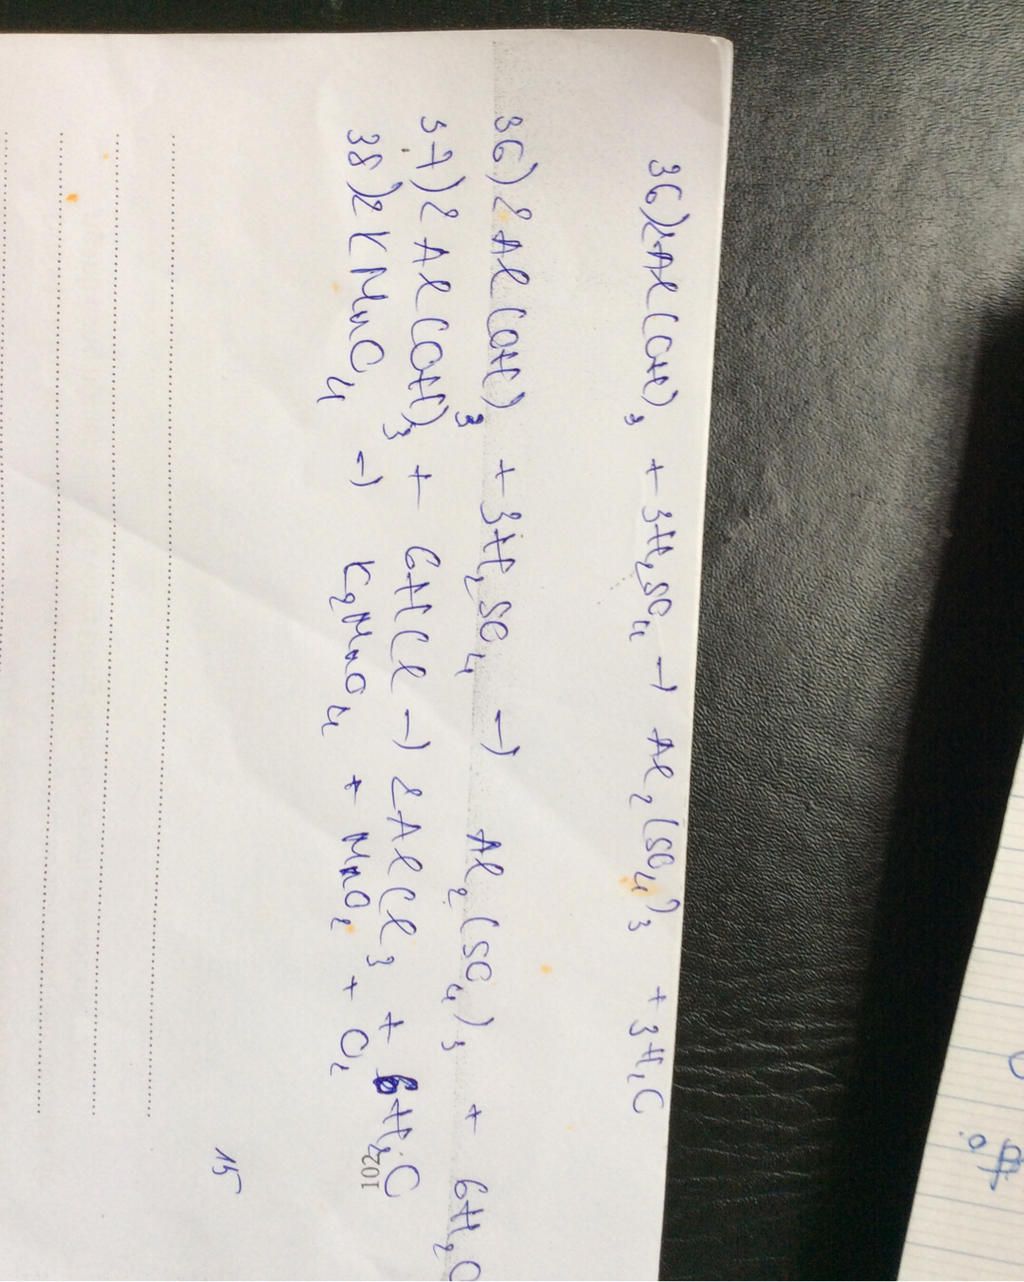 36) 2Al(OH)3 + 3H2SO4 → Al2(SO4)3 + 3H2O
36) 2Al(OH)3 + 3H2SO4 → Al2(SO4)3 + 6H2O
37) 2Al(OH)3 + 6HCl → 2AlCl3 + 6H2O
38) 2KMnO4 → K2MnO4 + MnO2 + O2
102
15